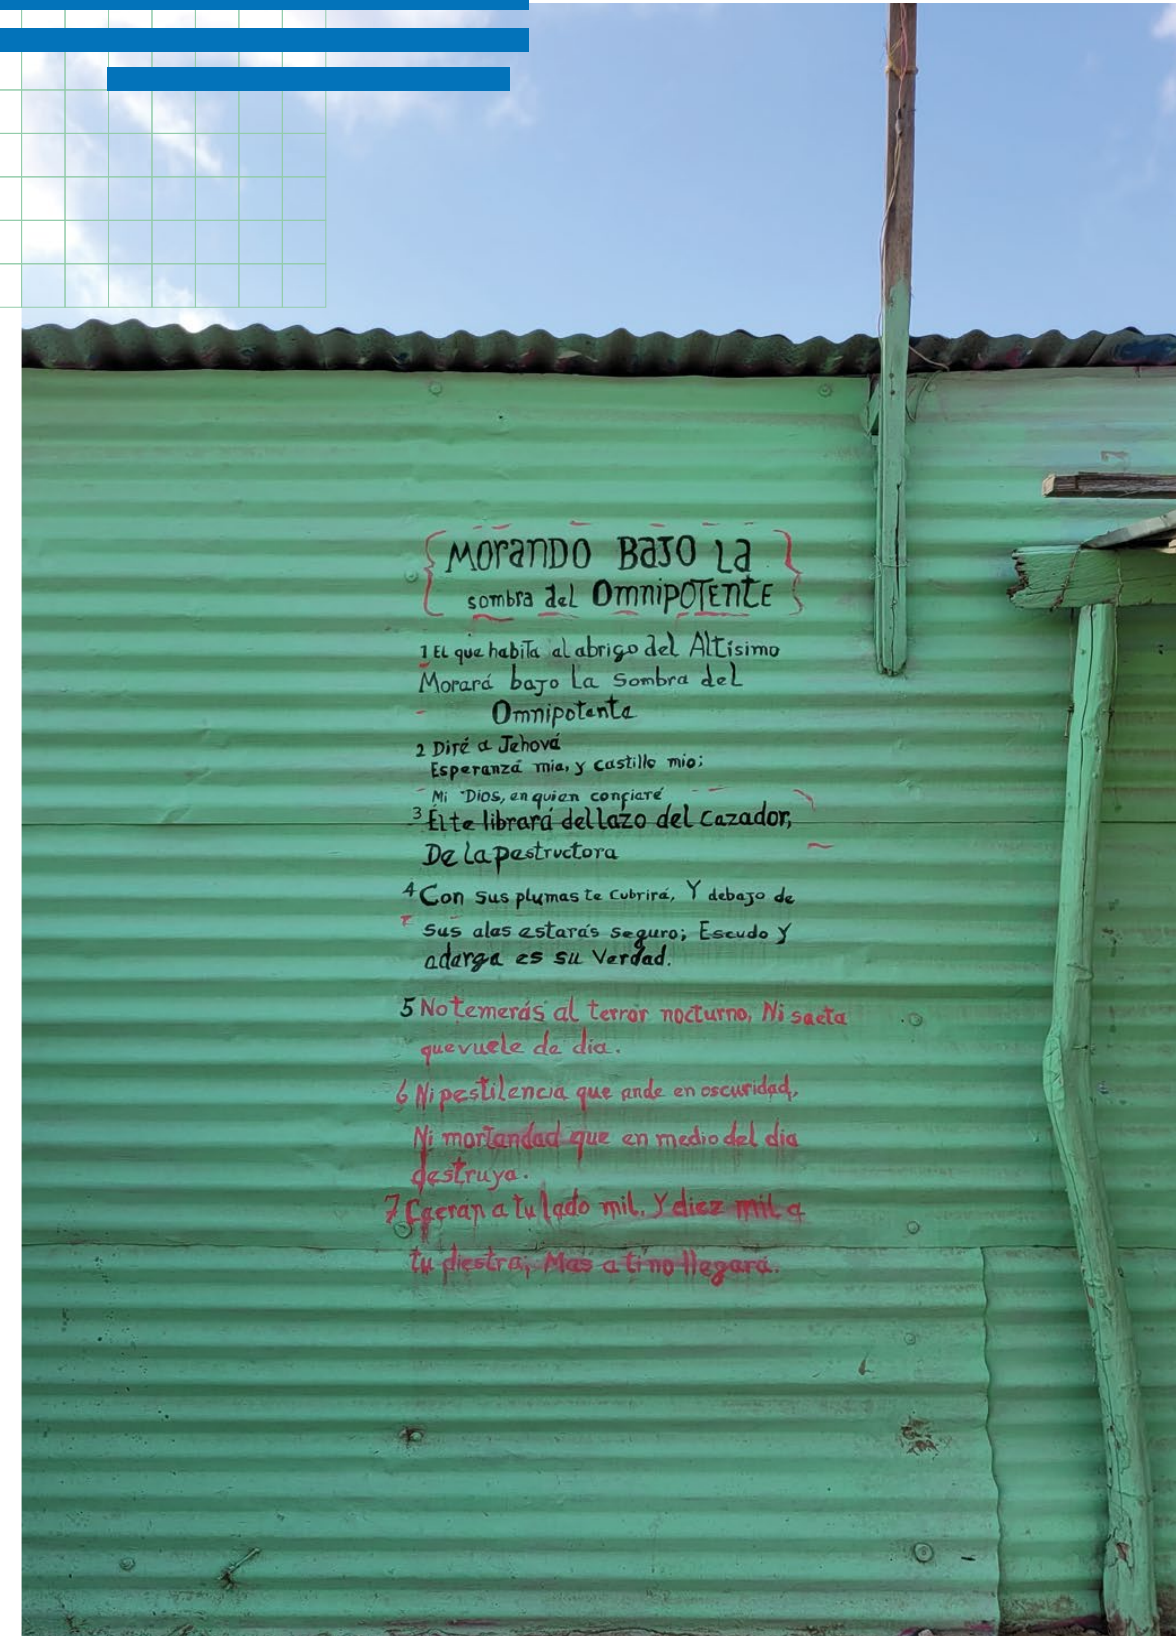 MORANDO BAJO LA
sombra del OMNIPOTENTE
1 El que habita al abrigo del Altísimo
Morará bajo La Sombra del
Omnipotente
2 Diré a Jehová
Esperanza mia, y castillo mio;
Mi Dios, en quien confiaré
3 Él te librará del lazo del cazador,
De la pestructora
4 Con sus plumas te cubrirá, Y debajo de
sus alas estarás seguro; Escudo Y
adarga es su Verdad.
5 No temerás al terror nocturno, Ni saeta
que vuele de día.
6 Ni pestilencia que ande en oscuridad,
Ni mortandad que en medio del dia
destruya.
7 Caerán a tu lado mil, Y diez mil a
tu diestra; Mas a ti no llegará.